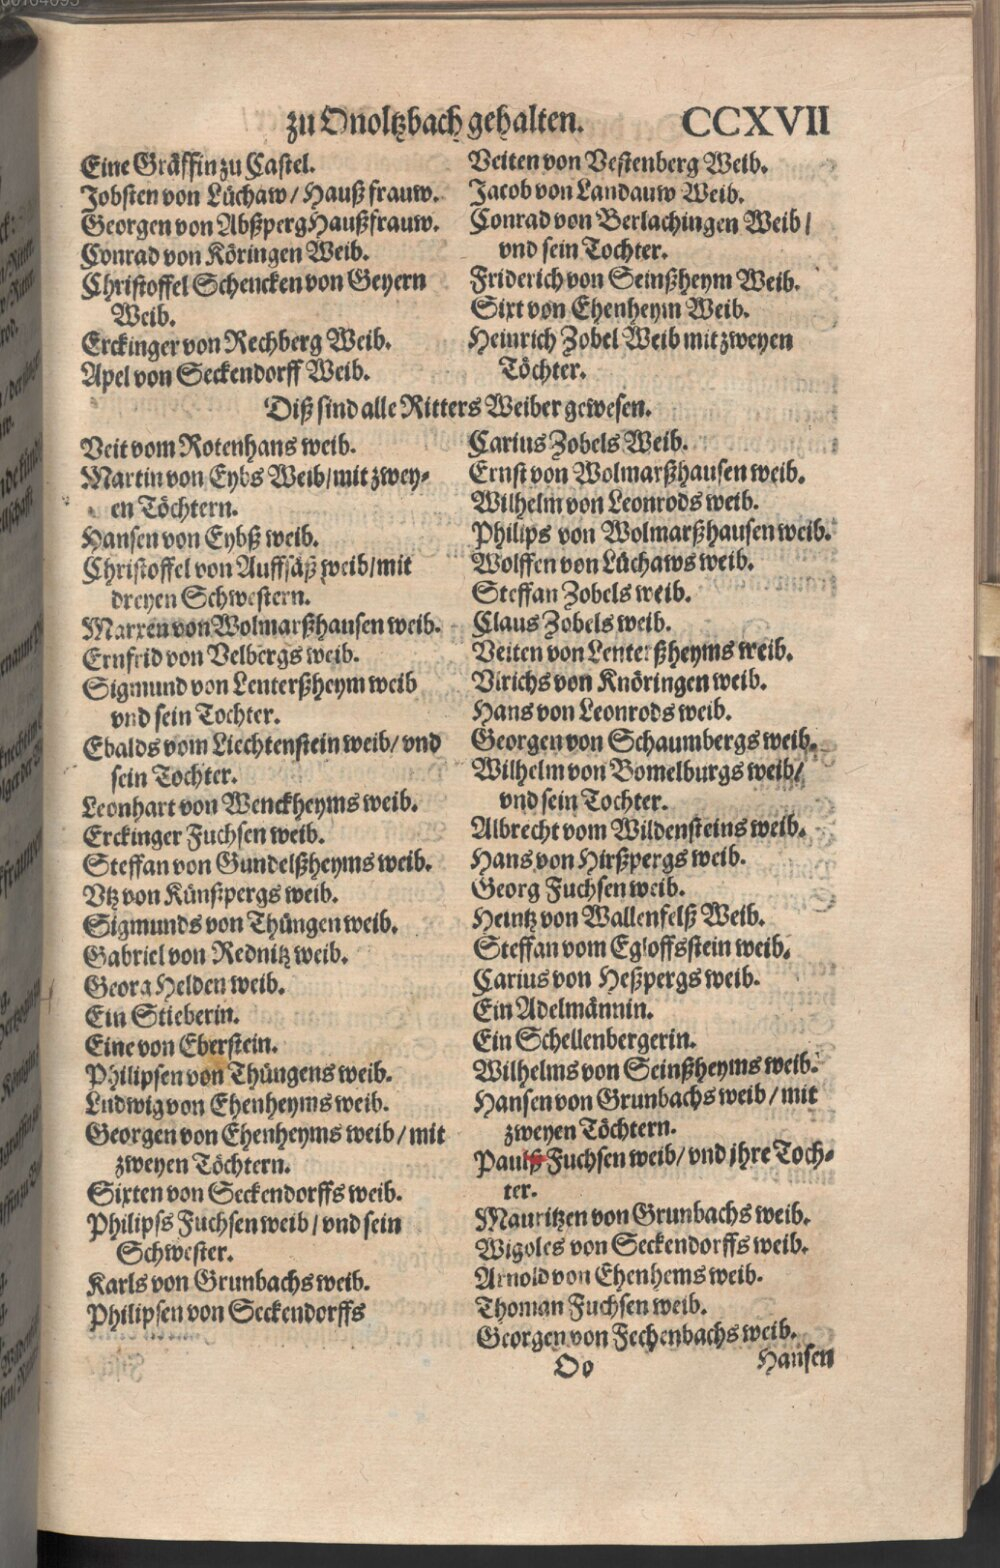 zu Onoltzbach gehalten. CCXVII
Eine Gräffin zu Castel.
Jobsten von Lüchaw / Hauß frauw.
Georgen von Abßperg Haußfrauw.
Conrad von Köringen Weib.
Christoffel Schencken von Geyern
Weib.
Erckinger von Rechberg Weib.
Apel von Seckendorff Weib.
Veiten von Vestenberg Weib.
Jacob von Landauw Weib.
Conrad von Berlachingen Weib /
vnd sein Tochter.
Friderich von Seinßheym Weib.
Sixt von Ehenheym Weib.
Heinrich Zobel Weib mit zweyen
Töchter.
Diß sind alle Ritters Weiber gewesen.
Veit vom Rotenhans weib.
Martin von Eybs Weib / mit zwey-
en Töchtern.
Hansen von Eybß weib.
Christoffel von Auffsäß weib / mit
dreyen Schwestern.
Marxen von Wolmarßhausen weib.
Ernfrid von Velbergs weib.
Sigmund von Lenterßheym weib
vnd sein Tochter.
Ebalds vom Liechtenstein weib / vnd
sein Tochter.
Leonhart von Wenckheyms weib.
Erckinger Fuchsen weib.
Steffan von Gundelßheyms weib.
Vtz von Künßpergs weib.
Sigmunds von Thüngen weib.
Gabriel von Rednitz weib.
Georg Helden weib.
Ein Stieberin.
Eine von Eberstein.
Philipsen von Thüngens weib.
Ludwig von Ehenheyms weib.
Georgen von Ehenheyms weib / mit
zweyen Töchtern.
Sixten von Seckendorffs weib.
Philipss Fuchsen weib / vnd sein
Schwester.
Karls von Grunbachs weib.
Philipsen von Seckendorffs
Carius Zobels Weib.
Ernst von Wolmarßhausen weib.
Wilhelm von Leonrods weib.
Philips von Wolmarßhausen weib.
Wolffen von Lüchaws weib.
Steffan Zobels weib.
Claus Zobels weib.
Veiten von Lenterßheyms weib.
Vlrichs von Knöringen weib.
Hans von Leonrods weib.
Georgen von Schaumbergs weib.
Wilhelm von Bomelburgs weib /
vnd sein Tochter.
Albrecht vom Wildensteins weib.
Hans von Hirßpergs weib.
Georg Fuchsen weib.
Heintz von Wallenfelß Weib.
Steffan vom Egloffsstein weib.
Carius von Heßpergs weib.
Ein Adelmännin.
Ein Schellenbergerin.
Wilhelms von Seinßheyms weib.
Hansen von Grunbachs weib / mit
zweyen Töchtern.
Paulß Fuchsen weib / vnd ihre Toch-
ter.
Mauritzen von Grunbachs weib.
Wigoles von Seckendorffs weib.
Arnold von Ehenhems weib.
Thoman Fuchsen weib.
Georgen von Fechenbachs weib.
Oo Hansen